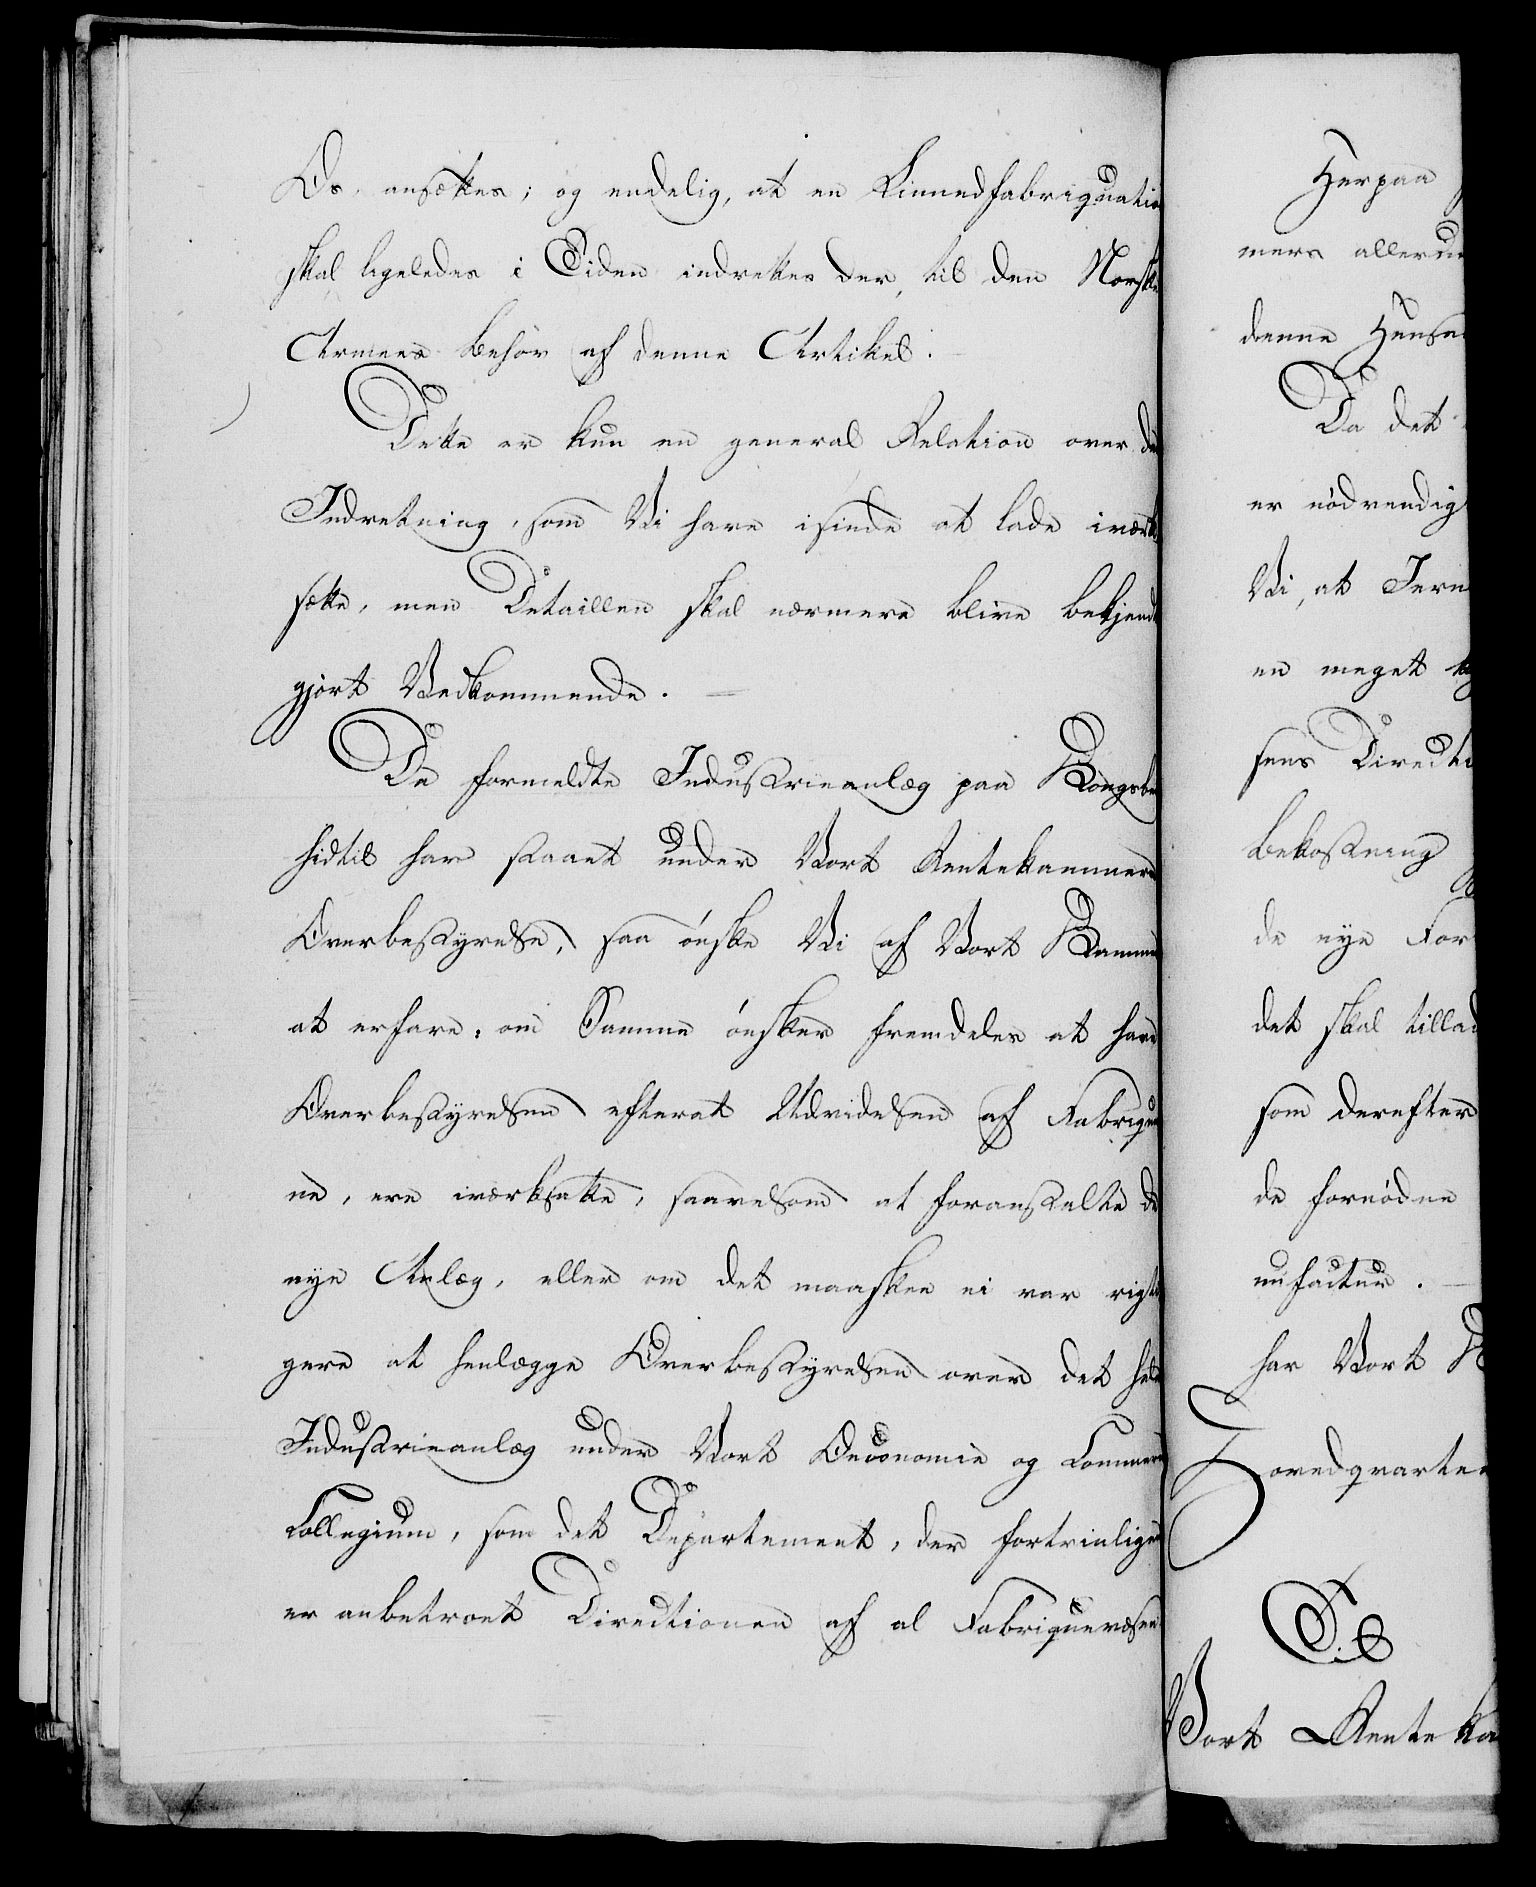 Os ansættes; og endelig, at en Linnedfabriquatio
skal ligeledes i Tiden indrettes der, til den Norske
Armees Behov af denne Artikel.
Dette er kun en general Relation over de
Indretning, som Vi have isinde at lade iværk
sætte, men Detaillen skal nærmere blive bekjendt
gjort Vedkommende.
Da formeldte Industrieanlæg paa Kongsbe
hidtil har staaet under Vort Rentekammers
Overbestyrelse, saa ønske Vi af Vort Kammer
at erfare: om Samme ønsker fremdeles at have
Overbestyrelsen efterat Udvidelsen af Fabriqu
ne, ere iværksatte, saavelsom at foranstalte de
nye Anlæg, eller om det maaskee ei var rigti
gere at henlægge Overbestyrelsen over det hele
Industrieanlæg under Vort Oeconomie og Commerce
Collegium, som det Departement, der fortrinligen
er anbetroet Directionen af al Fabriquevæsen
Herpaa
mers allerun
denne Hense
Da det
er nödvendig
Vi, at Jern
en meget
sens Directi
Bekostning
de nye For
det skal tillad
som derefter
de fornödne
nufactur.
har Vort
Hovedqvartee
Til
Vort Renteka